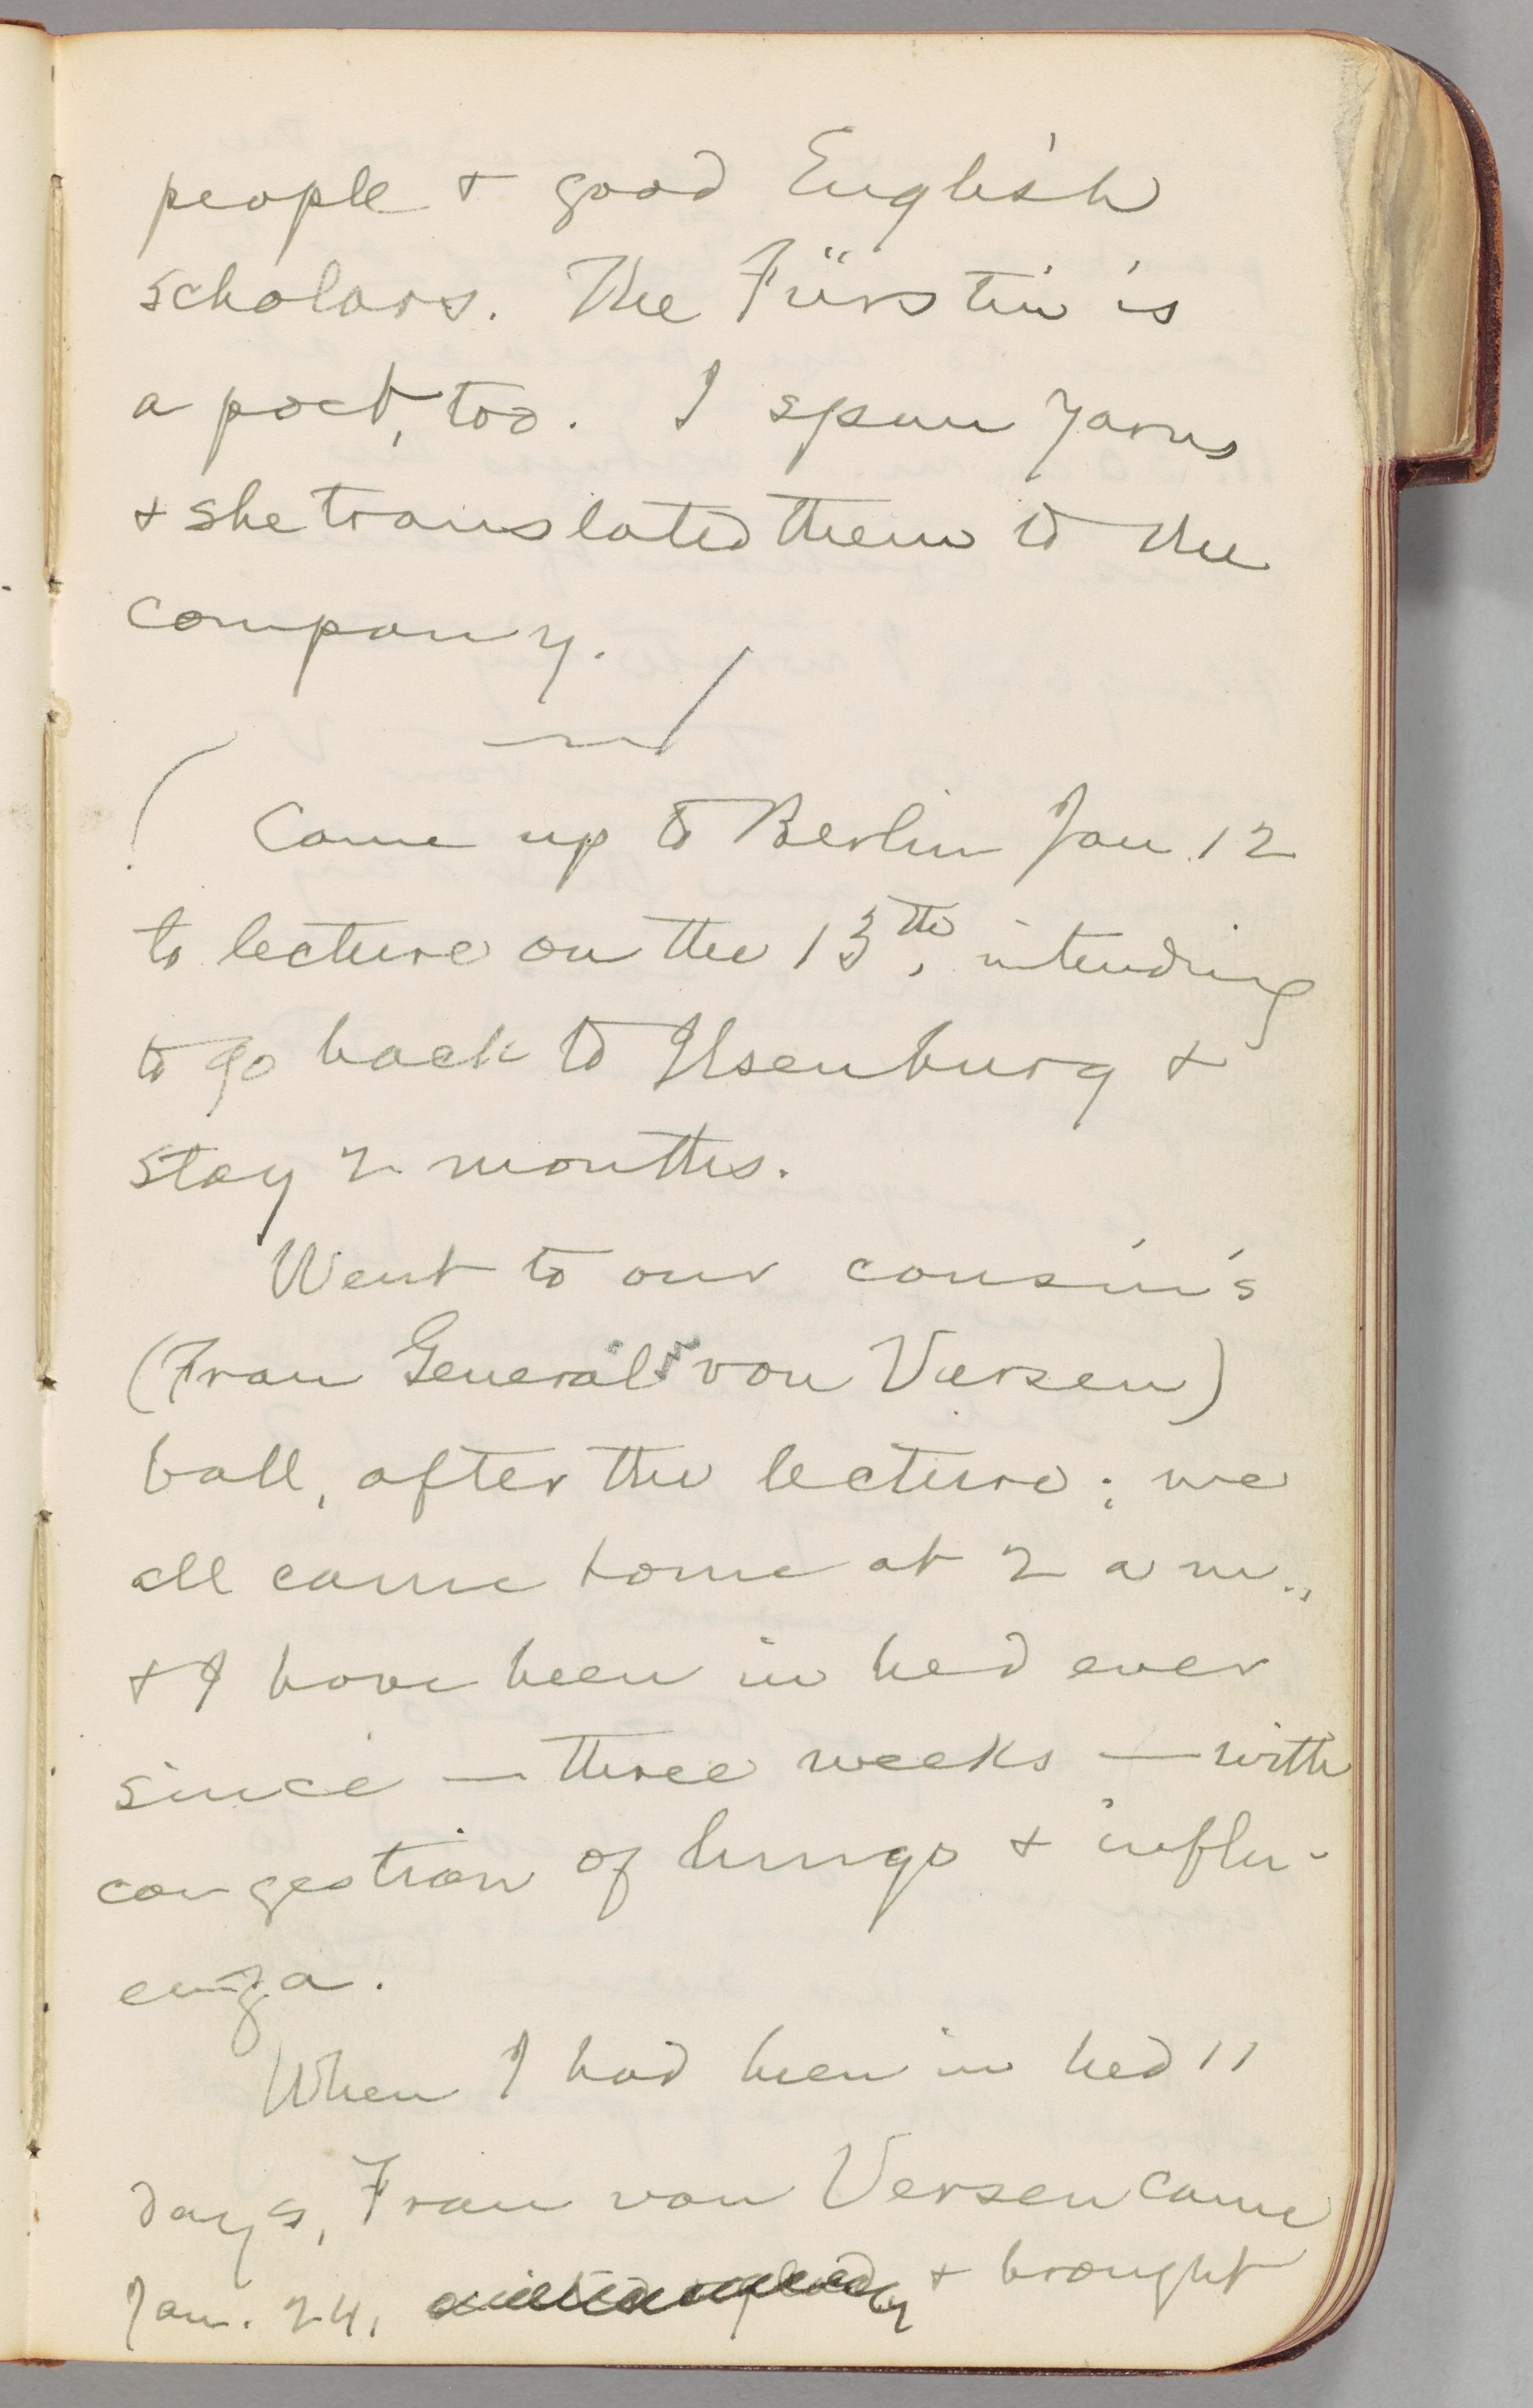 people & good English
scholars. The Fürstin is
a poet, too. I spun yarns
& she translated them to the
company.
Came up to Berlin Jan 12
to lecture on the 13th, intending
to go back to Ilsenburg &
stay 2 months.
Went to our cousin's
(Frau General von Versen)
ball, after the lecture; we
all came home at 2 a m.,
& I have been in bed ever
since — three weeks — with
congestion of lungs & influ-
enza.
When I had been in bed 11
days, Frau von Versen came
Jan. 24, & brought